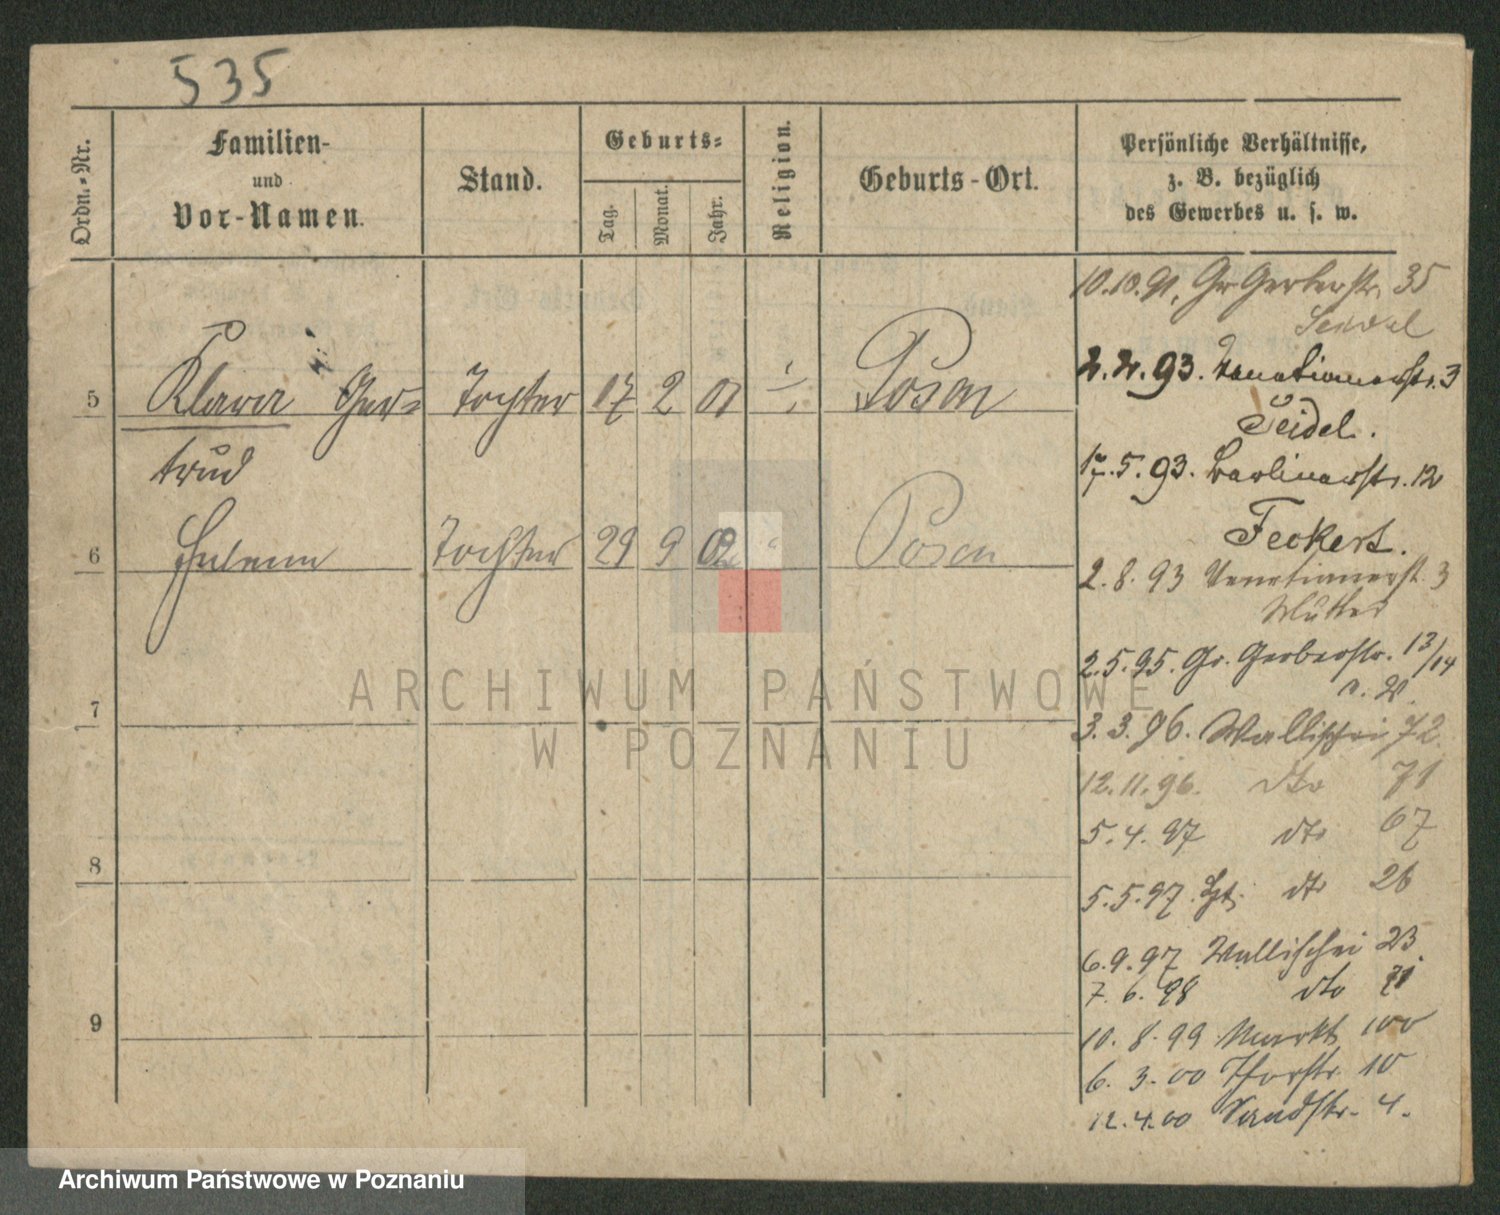 535
Ordn.-Nr.
Familien-
und
Vor-Namen.
Stand.
Geburts-
Tag.
Monat.
Jahr.
Religion.
Geburts-Ort.
Persönliche Verhältnisse,
z. B. bezüglich
des Gewerbes u. s. w.
5 Klara Ger= Tochter 17 2 01 Posen
trud
6 Helene Tochter 29 9 02 Posen
7
8
9
10.10.91, Gr Gerberstr. 35
Seidel
2.2.93. Venetianerstr. 3
Seidel.
17.5.93. Berlinerstr. 12
Feckert.
2.8.93 Venetianerst. 3
Mutter
2.5.95. Gr. Gerberstr. 13/14
3.3.96. Wallischei 72.
12.11.96. dto 71
5.4.97 dto 67
5.5.97. dto 26
6.9.97 Wallischei 23.
7.6.98 dto 71
10.8.99 Markt 100
6.3.00 Thorstr. 10
12.4.00 Sandstr. 4.
ARCHIWUM PAŃSTWOWE
W POZNANIU
Archiwum Państwowe w Poznaniu